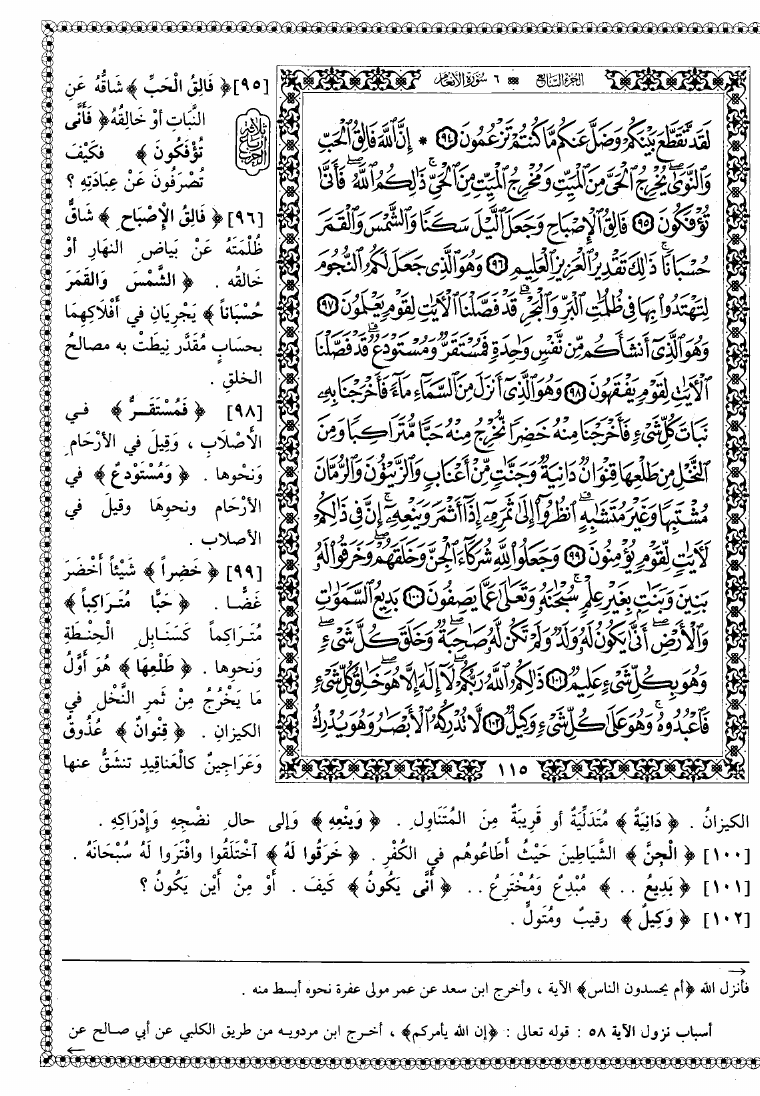 الجزء السابع ٦ سورة الأنعام
لَقَد تَّقَطَّعَ بَيْنَكُمْ وَضَلَّ عَنكُم مَّا كُنتُمْ تَزْعُمُونَ ٩٤ * إِنَّ ٱللَّهَ فَالِقُ ٱلْحَبِّ
وَٱلنَّوَىٰ يُخْرِجُ ٱلْحَىَّ مِنَ ٱلْمَيِّتِ وَمُخْرِجُ ٱلْمَيِّتِ مِنَ ٱلْحَىِّ ذَٰلِكُمُ ٱللَّهُ فَأَنَّىٰ
تُؤْفَكُونَ ٩٥ فَالِقُ ٱلْإِصْبَاحِ وَجَعَلَ ٱلَّيْلَ سَكَنًا وَٱلشَّمْسَ وَٱلْقَمَرَ
حُسْبَانًا ذَٰلِكَ تَقْدِيرُ ٱلْعَزِيزِ ٱلْعَلِيمِ ٩٦ وَهُوَ ٱلَّذِى جَعَلَ لَكُمُ ٱلنُّجُومَ
لِتَهْتَدُوا۟ بِهَا فِى ظُلُمَٰتِ ٱلْبَرِّ وَٱلْبَحْرِ قَدْ فَصَّلْنَا ٱلْءَايَٰتِ لِقَوْمٍ يَعْلَمُونَ ٩٧
وَهُوَ ٱلَّذِىٓ أَنشَأَكُم مِّن نَّفْسٍ وَٰحِدَةٍ فَمُسْتَقَرٌّ وَمُسْتَوْدَعٌ قَدْ فَصَّلْنَا
ٱلْءَايَٰتِ لِقَوْمٍ يَفْقَهُونَ ٩٨ وَهُوَ ٱلَّذِىٓ أَنزَلَ مِنَ ٱلسَّمَآءِ مَآءً فَأَخْرَجْنَا بِهِۦ
نَبَاتَ كُلِّ شَىْءٍ فَأَخْرَجْنَا مِنْهُ خَضِرًا نُّخْرِجُ مِنْهُ حَبًّا مُّتَرَاكِبًا وَمِنَ
ٱلنَّخْلِ مِن طَلْعِهَا قِنْوَانٌ دَانِيَةٌ وَجَنَّٰتٍ مِّنْ أَعْنَابٍ وَٱلزَّيْتُونَ وَٱلرُّمَّانَ
مُشْتَبِهًا وَغَيْرَ مُتَشَٰبِهٍ ٱنظُرُوٓا۟ إِلَىٰ ثَمَرِهِۦٓ إِذَآ أَثْمَرَ وَيَنْعِهِۦٓ إِنَّ فِى ذَٰلِكُمْ
لَءَايَٰتٍ لِّقَوْمٍ يُؤْمِنُونَ ٩٩ وَجَعَلُوا۟ لِلَّهِ شُرَكَآءَ ٱلْجِنَّ وَخَلَقَهُمْ وَخَرَقُوا۟ لَهُۥ
بَنِينَ وَبَنَٰتٍ بِغَيْرِ عِلْمٍ سُبْحَٰنَهُۥ وَتَعَٰلَىٰ عَمَّا يَصِفُونَ ١٠٠ بَدِيعُ ٱلسَّمَٰوَٰتِ
وَٱلْأَرْضِ أَنَّىٰ يَكُونُ لَهُۥ وَلَدٌ وَلَمْ تَكُن لَّهُۥ صَٰحِبَةٌ وَخَلَقَ كُلَّ شَىْءٍ
وَهُوَ بِكُلِّ شَىْءٍ عَلِيمٌ ١٠١ ذَٰلِكُمُ ٱللَّهُ رَبُّكُمْ لَآ إِلَٰهَ إِلَّا هُوَ خَٰلِقُ كُلِّ شَىْءٍ
فَٱعْبُدُوهُ وَهُوَ عَلَىٰ كُلِّ شَىْءٍ وَكِيلٌ ١٠٢ لَّا تُدْرِكُهُ ٱلْأَبْصَٰرُ وَهُوَ يُدْرِكُ
١١٥
[٩٥] ﴿ فَالِقُ الْحَبِّ ﴾ شَاقُّهُ عَنِ
النَّبَات أوْ خَالِقُهُ ﴿ فَأَنَّى
تُؤْفَكُونَ ﴾ فكَيْفَ
تُصْرَفُونَ عَنْ عِبَادَتِهِ ؟
[٩٦] ﴿ فَالِقُ الْإِصْبَاحِ ﴾ شَاقُّ
ظُلْمَتَهُ عَنْ بَيَاضِ النهَارِ أوْ
خَالقُه . ﴿ الشَّمْسَ وَالقَمَرَ
حُسْبَاناً ﴾ يَجْرِيَانِ في أَفْلَاكِهِمَا
بحسَابٍ مُقدَّر نِيطتْ به مصالحُ
الخلقِ .
[٩٨] ﴿ فَمُسْتَقَرٌّ ﴾ في
الأَصْلَابِ ، وَقِيلَ في الأَرْحَامِ
وَنَحْوِها . ﴿ وَمُسْتَوْدعٌ ﴾ في
الأرْحَام ونحوِهَا وقيلَ في
الأصلاب .
[٩٩] ﴿ خَضِراً ﴾ شَيْئاً أَخْضَرَ
غَضًّا . ﴿ حَبًّا مُتَرَاكِباً ﴾
مُتَرَاكِماً كَسَنَابِلِ الْحِنْطَةِ
وَنحوِها . ﴿ طَلْعِهَا ﴾ هُوَ أَوَّلُ
مَا يَخْرُجُ مِنْ ثمرِ النَّخْل في
الكيزانِ . ﴿ قِنْوانٌ ﴾ عُذُوقٌ
وَعَرَاجِينُ كالْعَناقِيدِ تنشَقُّ عنها
الكيزانُ . ﴿ دَانِيَةٌ ﴾ مُتَدَلِّيَةٌ أو قَرِيبَةٌ مِنَ المُتَنَاوِلِ . ﴿ وَيَنْعِهِ ﴾ وَإلى حال نضْجِهِ وَإِدْرَاكِهِ .
[١٠٠] ﴿ الْجِنَّ ﴾ الشَّيَاطِينَ حَيْثُ أَطَاعُوهُم في الكُفْرِ . ﴿ خَرَقُوا لَهُ ﴾ اخْتَلَقُوا وافْتَرَوا لَهُ سُبْحَانَهُ .
[١٠١] ﴿ بَدِيعُ .. ﴾ مُبْدِعُ وَمُخْتَرِعُ .. ﴿ أَنَّى يَكُونُ ﴾ كَيفَ . أَوْ مِنْ أَيْن يَكُونُ ؟
[١٠٢] ﴿ وَكِيلٌ ﴾ رقيبٌ ومُتَولٍّ .
فأنزل الله ﴿أم يحسدون الناس﴾ الآية ، وأخرج ابن سعد عن عمر مولى عفرة نحوه أبسط منه .
أسباب نزول الآية ٥٨ : قوله تعالى : ﴿إن الله يأمركم﴾ ، أخرج ابن مردويه من طريق الكلبي عن أبي صالح عن